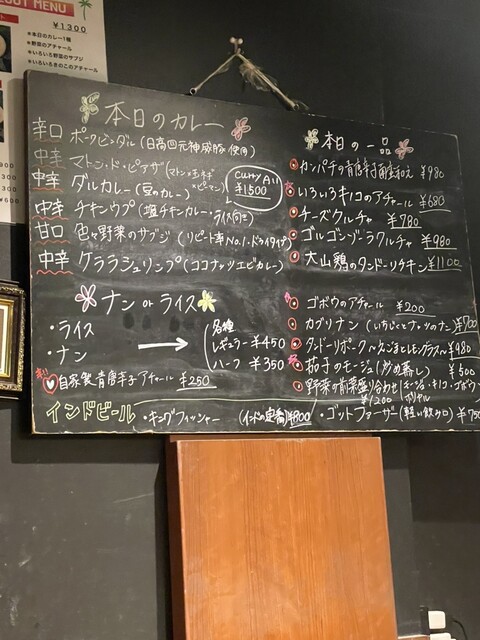 OUT MENU
¥1300
*本日のカレー1種
*野菜のアチャール
*いろいろ野菜のサブジ
*いろいろきのこのアチャール
本日のカレー
辛口 ポークビンダル(日高四元神威豚使用)
中辛 マトン・ド・ピアザ(マトン×玉ネギ×ピーマン)
中辛 ダルカレー(豆のカレー)
中辛 チキンウプ(塩チキンカレー・ライス向き)
甘口 色々野菜のサブジ(リピート率No.1・ドライタイプ)
中辛 ケララシュリンプ(ココナッツエビカレー)
Curry All
¥1500
ナン or ライス
・ライス
・ナン
各種
レギュラー ¥450
ハーフ ¥350
自家製青唐辛子アチャール ¥250
本日の一品
カンパチの青唐辛子 和え ¥980
いろいろキノコのアチャール ¥680
チーズクルチャ ¥780
ゴルゴンゾーラクルチャ ¥980
大山鶏のタンドーリチキン ¥1100
ゴボウのアチャール ¥200
カブリナン(いちじくとナッツのナン) ¥700
タンドーリポーク〜えごまとレモングラス〜 ¥980
茄子のモージュ(炒め蒸し) ¥500
野菜の前菜盛り合わせ(モージュ・キノコ・ゴボウ・
¥1200
インドビール ・キングフィッシャー(インドの定番) ¥800 ・ゴッドファーザー(軽い飲み口) ¥750